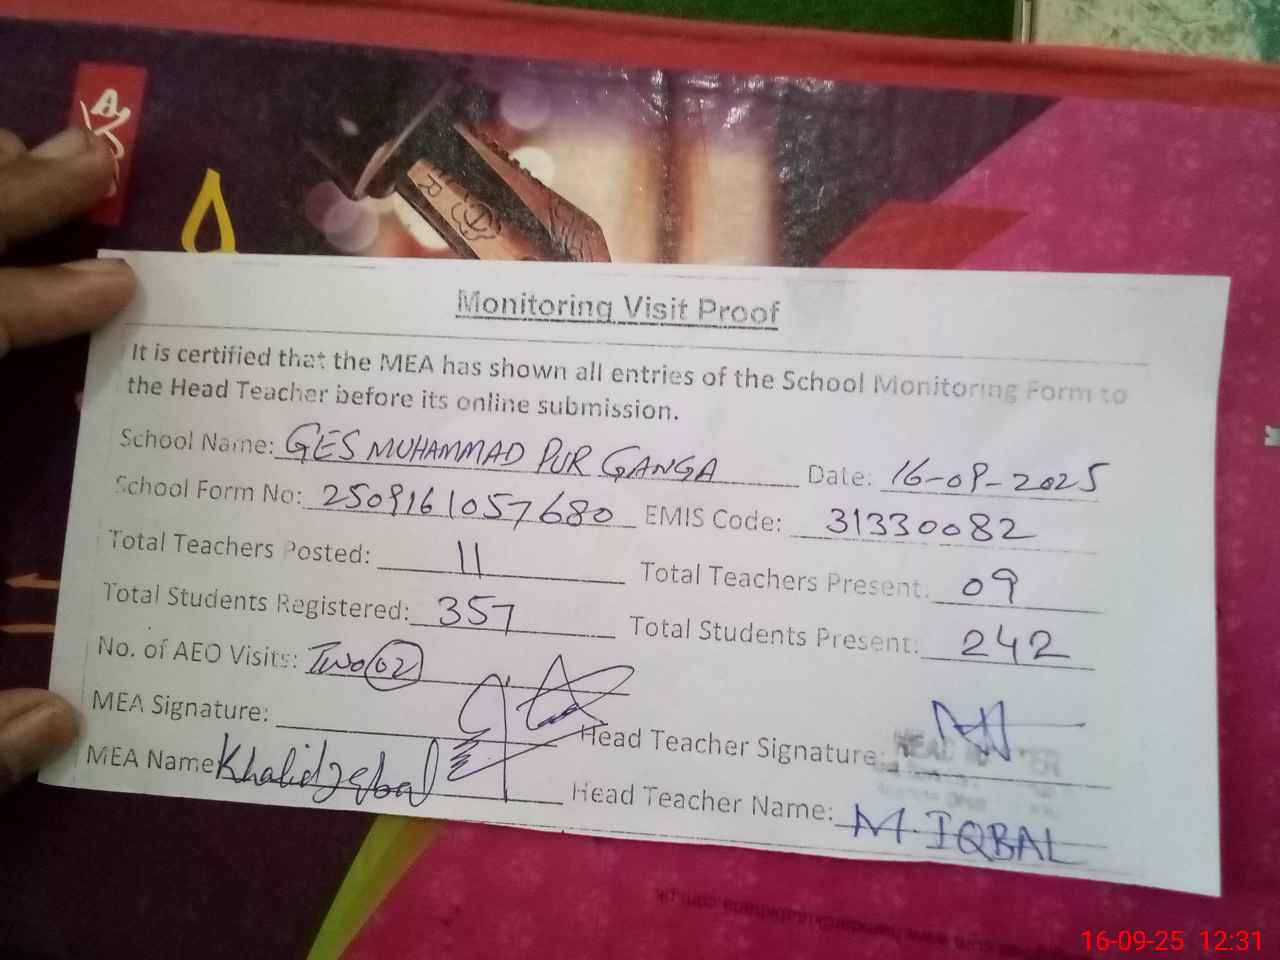 Monitoring Visit Proof
It is certified that the MEA has shown all entries of the School Monitoring Form to
the Head Teacher before its online submission.
School Name: GES MUHAMMAD PUR GANGA Date: 16-09-2025
School Form No: 2509161057680 EMIS Code: 31330082
Total Teachers Posted: 11 Total Teachers Present: 09
Total Students Registered: 357 Total Students Present: 242
No. of AEO Visits: Two 02
MEA Signature: Head Teacher Signature:
HEAD
MEA Name Khalid Iqbal Head Teacher Name: M. IQBAL
16-09-25 12:31